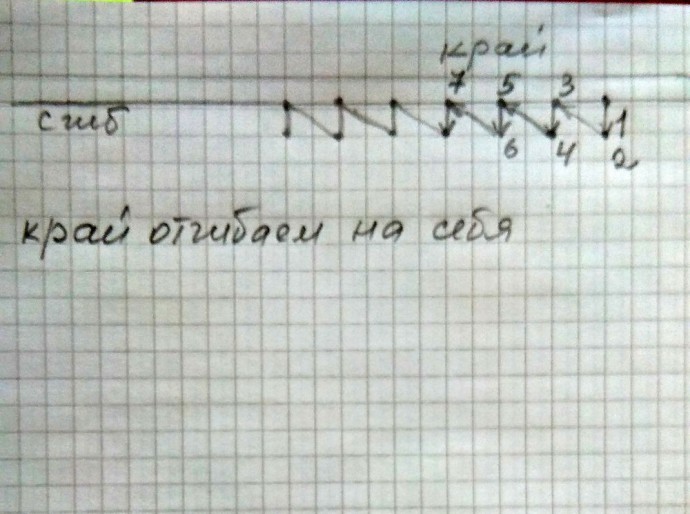 край
7 5 3
сгиб 1
6 4 2
край отгибаем на себя